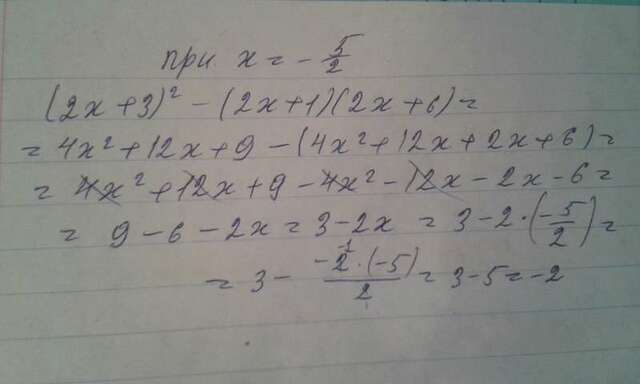 при x = - 5/2
(2x+3)² - (2x+1)(2x+6) =
= 4x² + 12x + 9 - (4x² + 12x + 2x + 6) =
= 4x² + 12x + 9 - 4x² - 12x - 2x - 6 =
= 9 - 6 - 2x = 3 - 2x = 3 - 2 · (-5/2) =
= 3 - -2 · (-5)/2 = 3 - 5 = -2